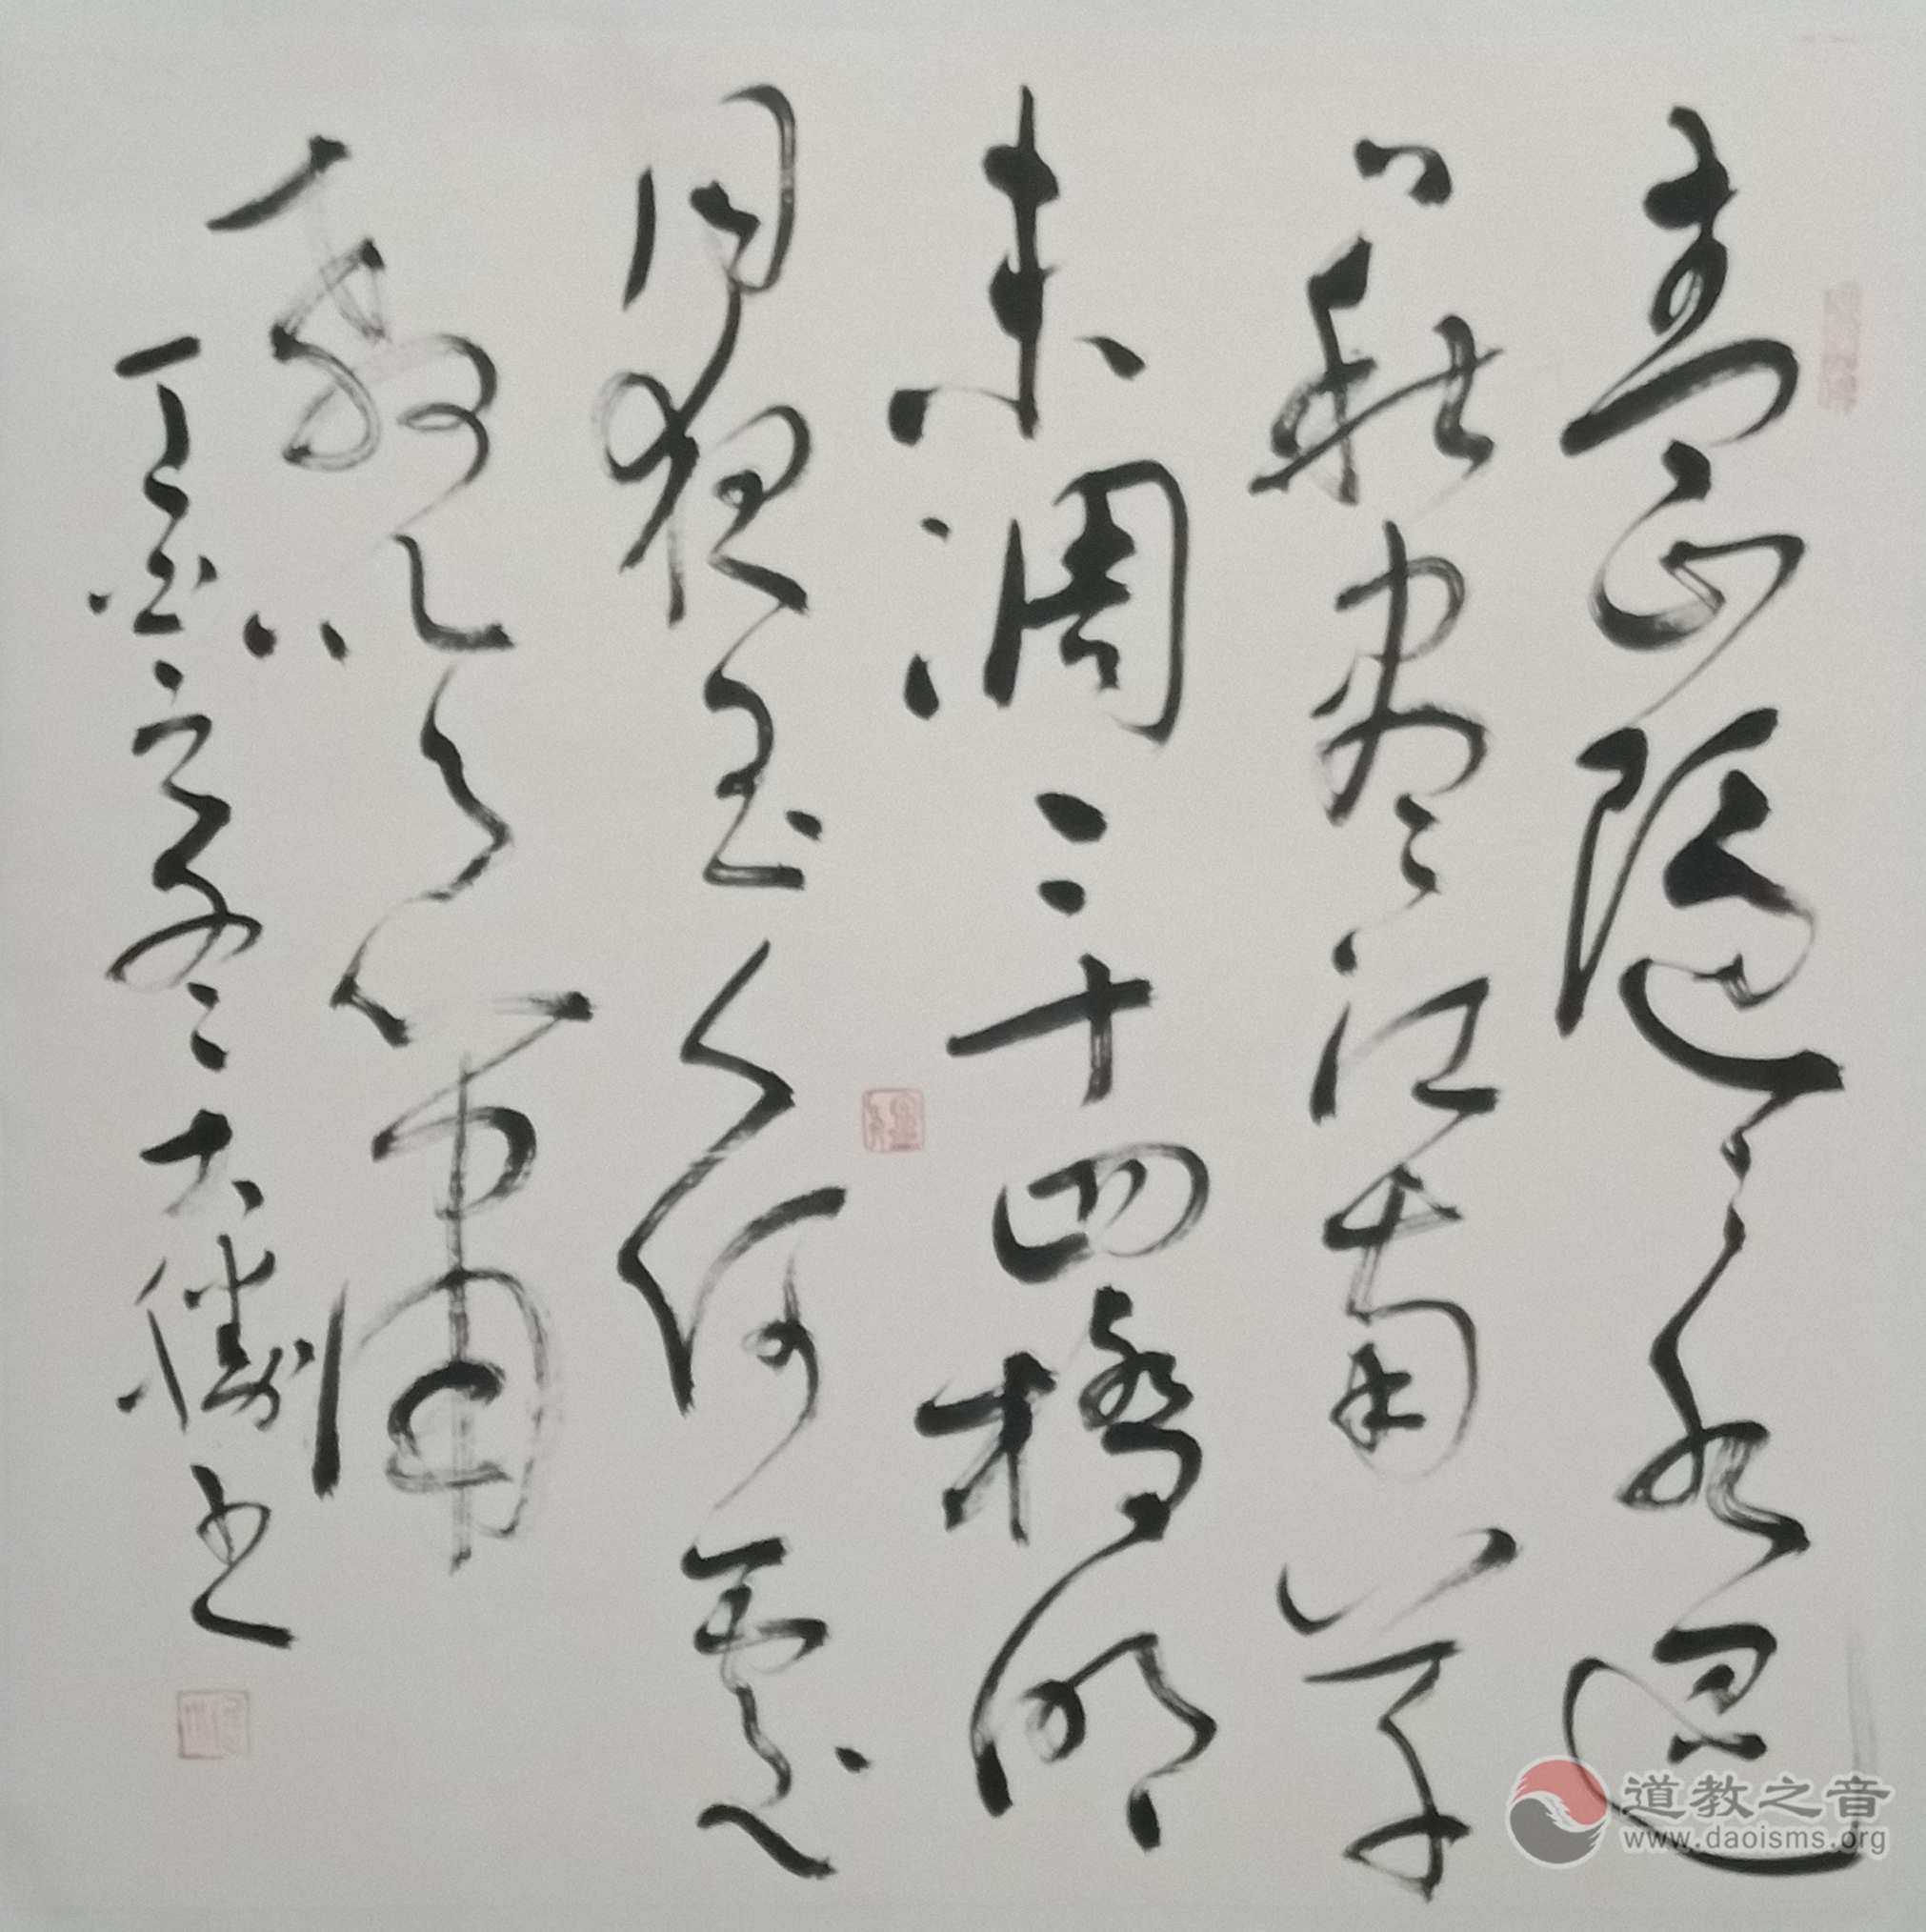 青山隱々水迢
々秋盡江南草
未凋二十四橋明
月夜玉人何處
教吹簫
丁酉冬書
道教之音
www.daoisms.org